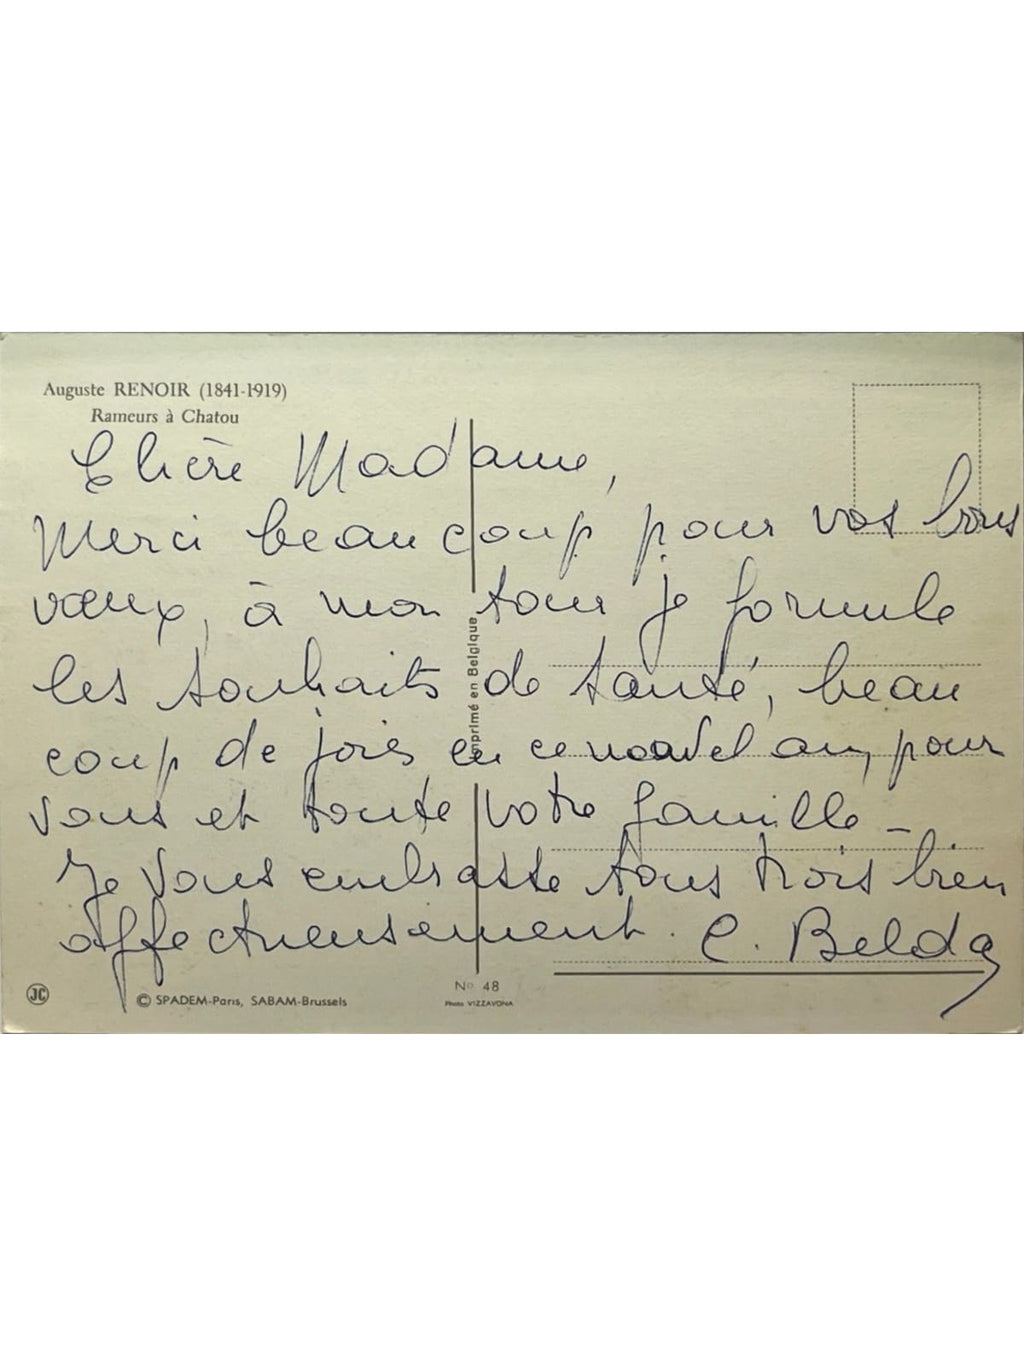 Auguste RENOIR (1841-1919)
Rameurs à Chatou
Chère Madame,
Merci beaucoup pour vos bons
vœux, à mon tour je formule
les souhaits de santé, beau
coup de joies en ce nouvel an, pour
vous et toute votre famille _
Je vous embrasse tous trois bien
affectueusement. C. Belda
Imprimé en Belgique
JC
© SPADEM-Paris, SABAM-Brussels
No 48
Photo VIZZAVONA